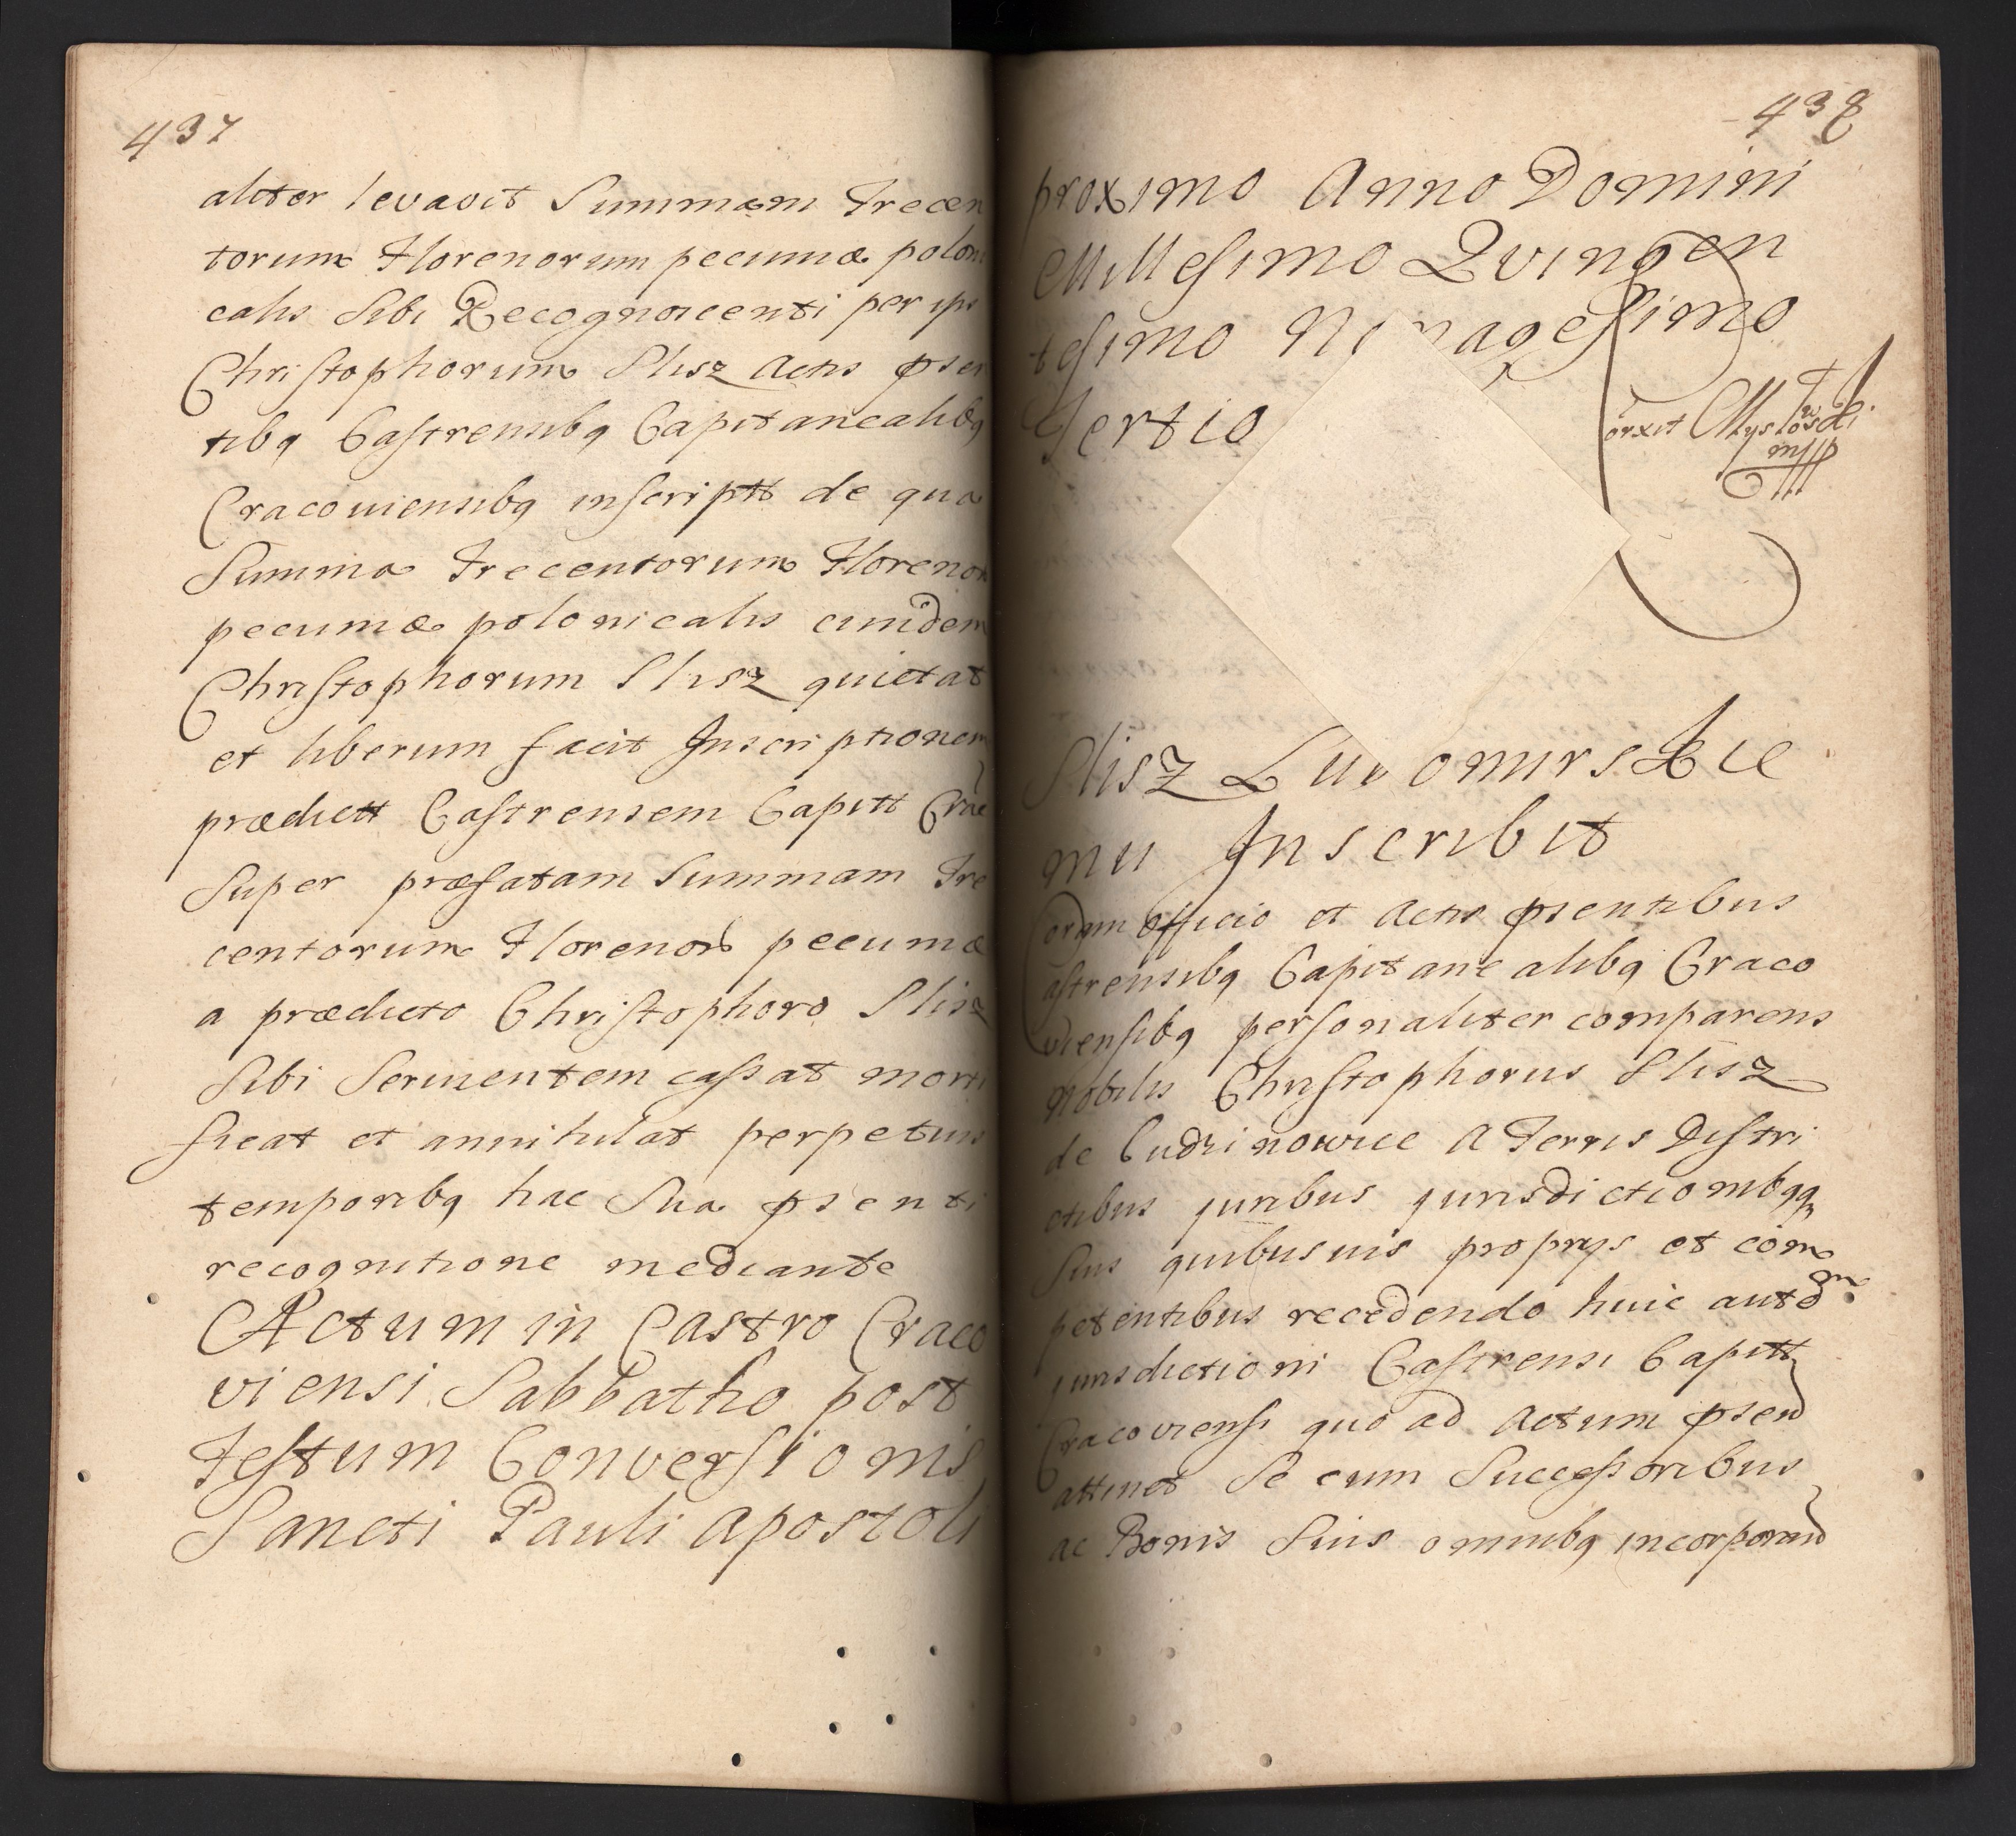 437
aliter levavit Summam Trecen
torum Florenorum pecuniæ poloni
calis Sibi Recognoscenti per ips
Christophorum Slisz Actis pser
tibq Castrensibq Capitanealibq
Cracoviensibq inscriptt de qua
Summa Trecentorum Florenor
pecuniæ polonicalis eundem
Christophorum Slisz quietat
et liberum facit Inscriptionem
prædictt Castrensem Capitt Crac
Super præfatam Summam Tre
centorum Florenor pecuniæ
a prædicto Christophoro Slisz
Sibi Servientem cassat morti
ficat et annihilat perpetuis
temporibq hac Sua psenti
recognitione mediante
Actum in Castro Craco
viensi Sabbatho post
Festum Conversionis
Sancti Pauli Apostoli
438
proximo Anno Domini
Millesimo Qvingen
tesimo Nonagesimo
Tertio
orxit
mpp
Slisz Lubomirskie
mu Inscribit
Coram Officio et Actis psentibus
Castrensibq Capitanealibq Craco
viensibq personaliter comparens
Nobilis Christophorus Slisz
de Cudzinowice A Terris Distri
ctibus juribus jurisdictionibqq
Suis quibusuis proprys et com
petentibus recedendo huic autem
jurisdictioni Castrensi Capitt
Cracoviensi quo ad Actum psend
attinet Se cum Successoribus
ac Bonis Suis omnibq incorporand